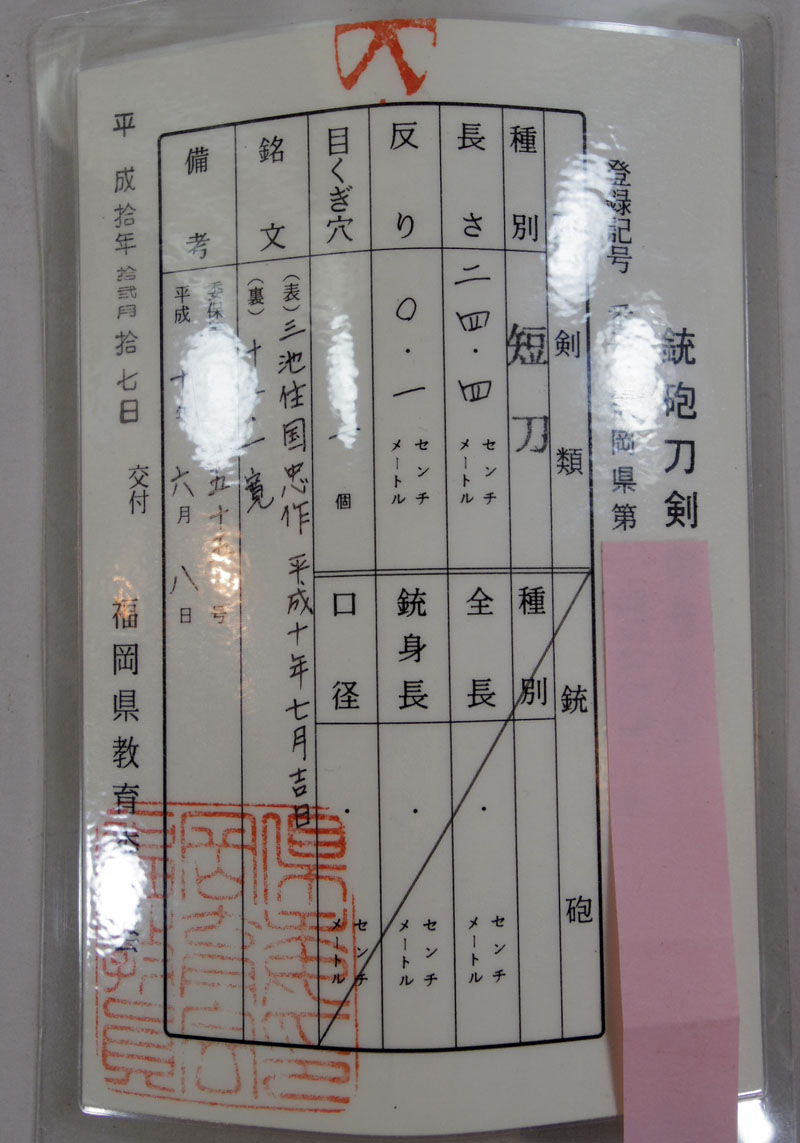 銃砲刀剣
登録記号 岡県第
剣類
種別 短刀
長さ 二四・四 センチメートル
反り 〇・一 センチメートル
目くぎ穴 個
銘文 (表)三池住国忠作 平成十年七月吉日
(裏)
備考
号
平成 十年 六月 八日
銃砲
種別
全長 ・ センチメートル
銃身長 ・ センチメートル
口径 ・ センチメートル
平成拾年拾弐月拾七日 交付 福岡県教育